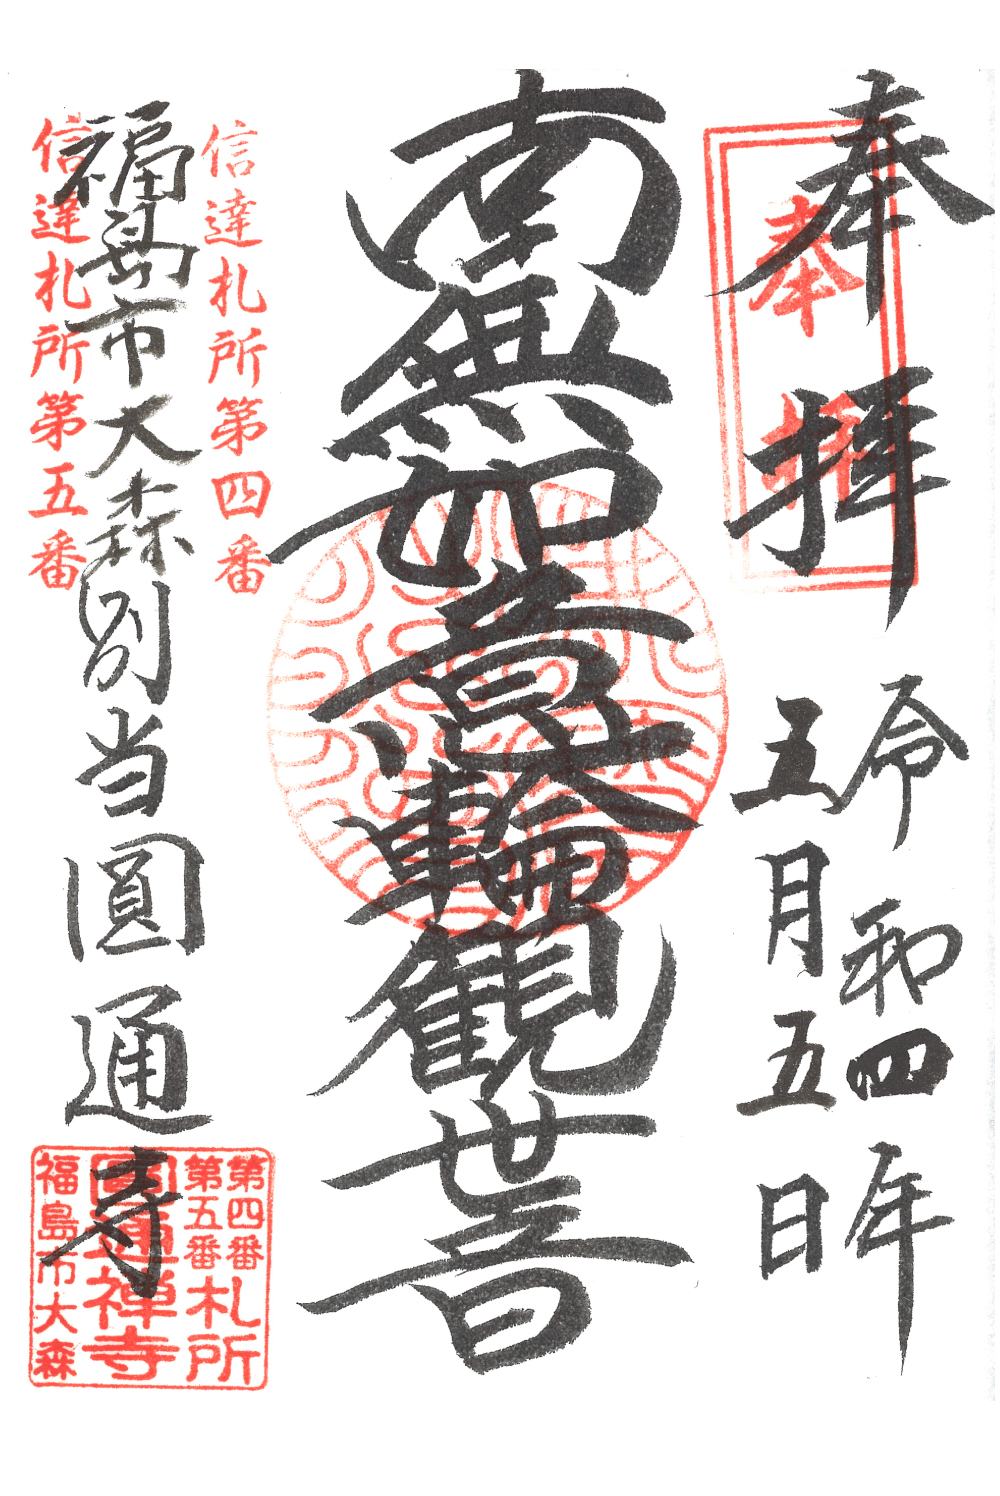 奉拝
奉拝
令和四年
五月五日
南無如意輪観世音
信達札所第四番
福島市大森別当圓通寺
信達札所第五番
第四番
第五番
札所
圓通禅寺
福島市大森